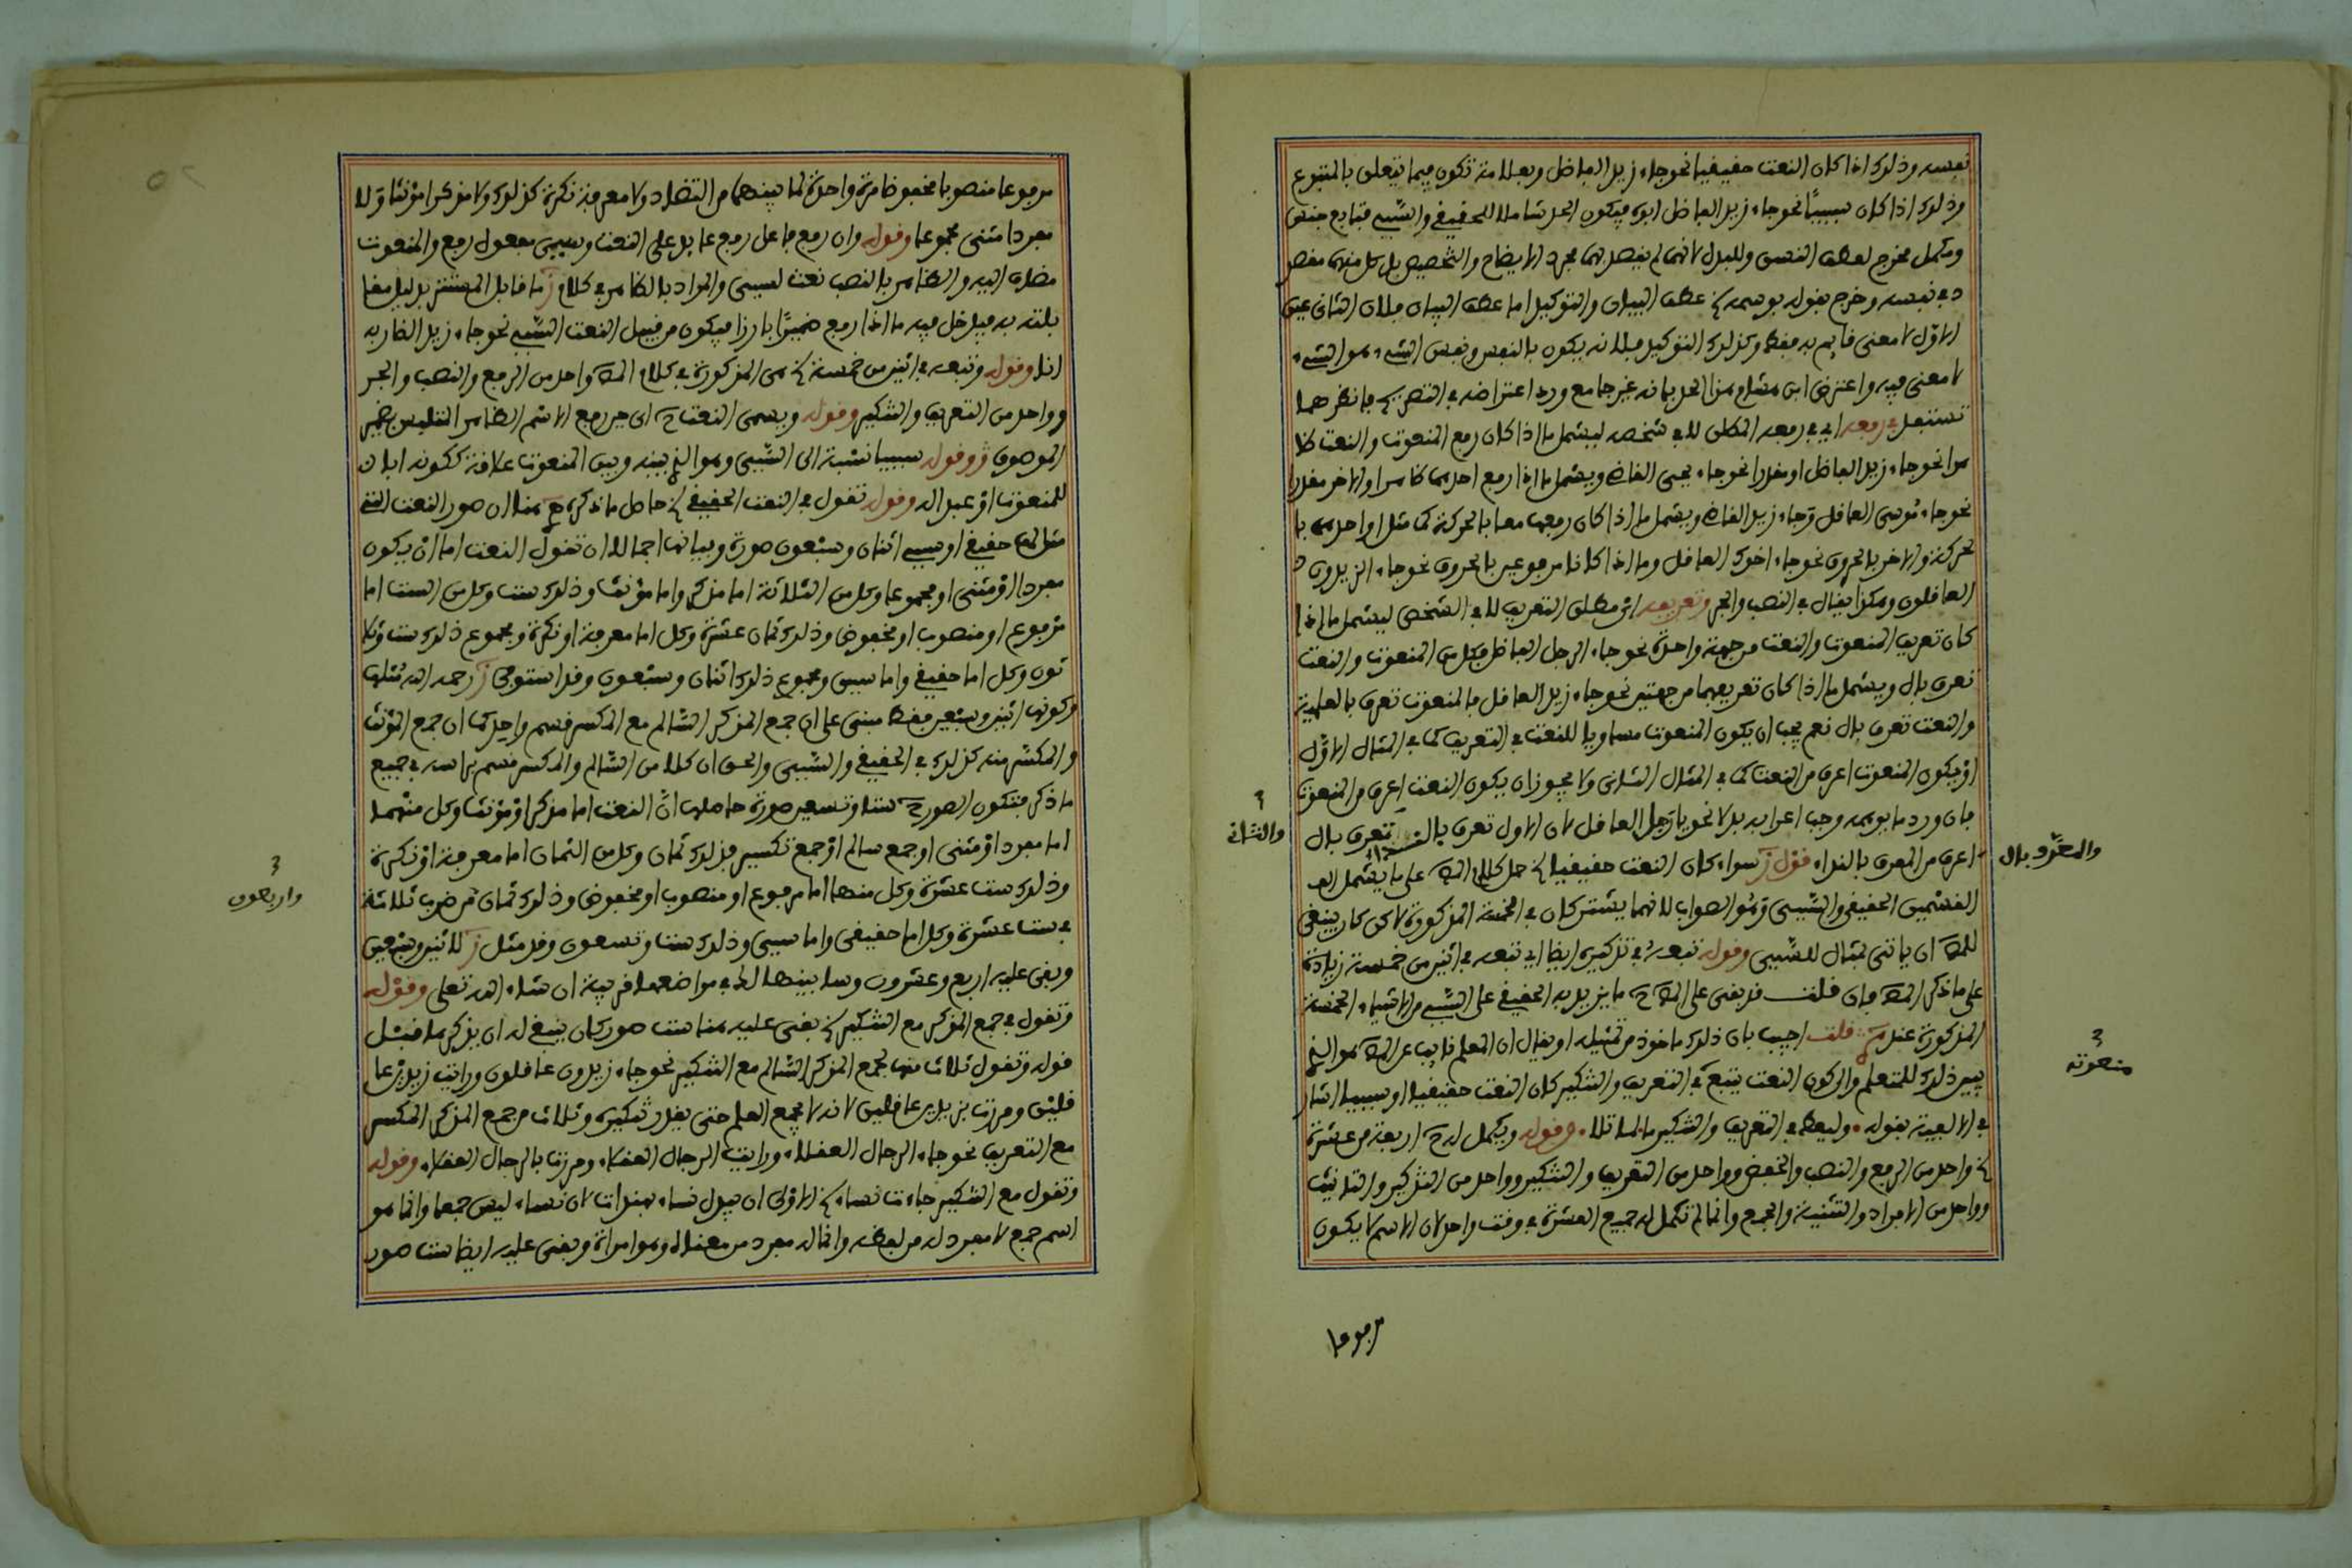 نفسه وذلك اذا كان النعت حقيقيا نحو جاء زيد الفاضل وبعلامة تكون فيما يتعلق بالمتبوع
وذلك اذا كان سببيًّا نحو جاء زيد الفاضل ابوه فيكون الحد شاملا للحقيقي والسّببي فتابع جنس
ومكمل مخرج لعطف النسق وللبدل لانهما لم يقصد بهما مجرد الايضاح والتخصيص بل كل منهما مقصو
د في نفسه وخرج بقوله بوسمه الخ عطف البيان والتوكيد اما عطف البيان فلان الثاني عين
الاوّل لا معنى قايم به فقط وكذلك التوكيد فلانه يكون بالنفس ونفس الشيء هو الشيء
لا معنى فيه واعترض ابن هشام هذا الحد بانه غير جامع ورد اعتراضه في التصريح فانظرهما
تستفد في رفعه اي في رفعه المطلق لا في شخصه ليشمل ما اذا كان رفع المنعوت والنعت ظا
هرا نحو جاء زيد الفاضل او مقدرا نحو جاء يحيى القاضي ويشمل ما اذا رفع احدهما ظاهرا والاخر مقدرا
نحو جاء موسى العاقل وجاء زيد القاضي ويشمل ما اذا كان رفعهما معا بالحركة كما مثل او احدهما با
لحركة والاخر بالحروف نحو جاء اخوك العاقل وما اذا كانا مرفوعين بالحروف نحو جاء الزيدون
العاقلون وهكذا يقال في النصب والجر وتعريفه اي مطلق التعريف لا في الشخص ليشمل ما اذا
كان تعريف المنعوت والنعت من جهة واحدة نحو جاء الرجل الفاضل فكل من المنعوت والنعت
تعرف بال ويشمل ما اذا كان تعريفهما من جهتين نحو جاء زيد العاقل فالمنعوت تعرف بالعلمية
والنعت تعرف بال نعم يجب ان يكون المنعوت مساويا للنعت في التعريف كما في المثال الاوّل
او يكون المنعوت اعرف من النعت كما في المثال الثاني ولا يجوز ان يكون النعت اعرف من المنعوت
فان ورد ما يوهمه وجب اعرابه بدلا نحو يا رجل العاقل لان الاول تعرف بالنداء تعرف بال
والثاني
والمعرّف بال
اعرف من المعرف بالنداء قول ز سواء كان النعت حقيقيا الخ حمل كلام المص على ما يشمل
القسمين الحقيقي والسّببي وهو الصواب لانهما يشتركان في الخمسة المذكورة لاكن كان ينبغي
للمص ان ياتي بمثال للسّببي وقوله تبعه في تذكيره ايضا اي تبعه في اثنين من خمسة زيادة
على ما ذكر المص فان قلت قد بقي على المص ح ما يزيد به الحقيقي على السّببي من الاشياء الخمسة
المذكورة عند قلت اجيب بان ذلك ماخوذ من تمثيله او يقال ان المعلم نايب عن المص هو الذي
منعوته
يبين ذلك للمتعلم والى كون النعت يتبع في التعريف والتنكير كان النعت حقيقيا او سببيا اشار
في الالفية بقوله وليعط في التعريف والتنكير ما لما تلا وقوله ويكمل له ح اربعة من عشرة
الخ واحد من الرفع والنصب والخفض وواحد من التعريف والتنكير وواحد من التذكير والتانيث
وواحد من الافراد والتثنية والجمع وانما لم تكمل له جميع العشرة في وقت واحد لان الاسم لا يكون
مرفوعا
مرفوعا منصوبا مخفوضا مرة واحدة لما بينهما من التضاد ولا معرفة نكرة كذلك ولا مذكرا مؤنثا ولا
مفردا مثنى مجموعا وقوله وان رفع فاعل رفع عايد على النعت وسببي مفعول رفع والمنعوت
مضاف اليه والظاهر بالنصب نعت لسببي والمراد بالظاهر في كلام ز ما قابل المستتر بدليل مقا
بلته به فيدخل فيه ما اذا رفع ضميرًا بارزا فيكون من قبيل النعت السّببي نحو جاء زيد الضاربه
انا وقوله وتبعه في اثنين من خمسة الخ هي المذكورة في كلام المص واحد من الرفع والنصب والجر
وواحد من التعريف والتنكير وقوله ويسمى النعت ح اي حين رفع الاسم الظاهر المتلبس بضمير
الموصوف وقوله سببيا نسبة الى السّببي وهو الذي بينه وبين المنعوت علاقة ككونه ابا ن
للمنعوت او عبدا له وقوله تقول في النعت الحقيقي الخ حاصل ما ذكره هنا ان صور النعت التي
مثل لها حقيقي او سببي اثنان وسبعون صورة وبيانها اجمالا ان تقول النعت اما ان يكون
مفردا او مثنى او مجموعا وكل من الثلاثة اما مذكر واما مؤنث وذلك ست وكل من الست اما
مرفوع او منصوب او مخفوض وذلك ثمان عشرة وكل اما معرفة او نكرة ومجموع ذلك ست وثلا
ثون وكل اما حقيقي واما سببي ومجموع ذلك اثنان وسبعون وقد استوفى ز رحمه الله مثلها
وكونها اثنين وسبعين فقط مبني على ان جمع المذكر السّالم مع المكسر قسم واحد كما ان جمع المؤنث
والمكسّر منه كذلك في الحقيقي والسّببي والحق ان كلا من السّالم والمكسر قسم براسه في جميع
ما ذكر فتكون الصور ح ستا وتسعين صورة حاصلها انّ النعت اما مذكر او مؤنث وكل منهما
اما مفرد او مثنى او جمع سالم او جمع تكسير فذلك ثمان وكل من الثمان اما معرفة او نكرة
وذلك ست عشرة وكل منها اما مرفوع او منصوب او مخفوض وذلك ثمان من ضرب ثلاثة
واربعون
في ست عشرة وكل اما حقيقي واما سببي وذلك ست وتسعون وقد مثل ز لاثنين وسبعين
وبقي عليه اربع وعشرون وسابينها لك في مواضعها قريبا ان شاء الله تعلى وقوله
وتقول في جمع المذكر مع التنكير الخ بقي عليه هنا ست صور كان ينبغي له ان يذكرها قبل
قوله وتقول ثلاث منها لجمع المذكر السّالم مع التنكير نحو جاء زيدون عاقلون ورايت زيدين عا
قلين ومررت بزيدين عاقلين لانه لا يجمع العلم حتى يقدر تنكيره وثلاث من جمع المذكر المكسر
مع التعريف نحو جاء الرجال العقلاء ورايت الرجال العقلاء ومررت بالرجال العقلاء وقوله
وتقول مع التنكير جاءت نساء الخ الاولى ان يبدل نساء بهندات لان نساء ليس جمعا وانما هو
اسم جمع لا مفرد له من لفظه وانما له مفرد من معناه وهو امراة وبقي عليه ايضا ست صور